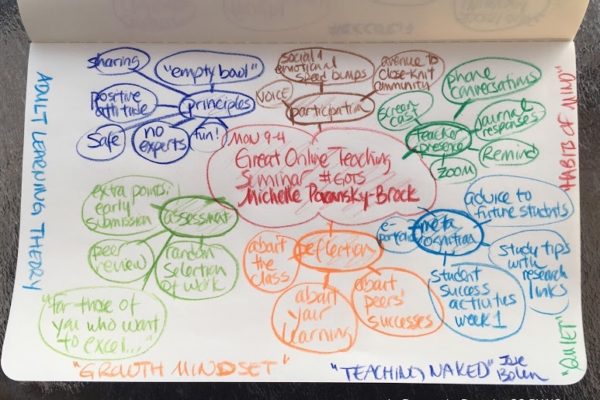 sharing
"empty bowl"
positive
attitude
principles
Safe
no
experts
fun!
social &
emotional
speed bumps
VOICE
participation
avenue to
close-knit
community
screen
cast
phone
conversations
teacher
presence
journal
responses
Remind
zoom
MON 9-4
Great Online Teaching
Seminar #GOTS
Michelle Pacansky-Brock
extra points:
early
submission
assessment
peer
review
random
selection
of work
"for those of
you who want
to excel..."
reflection
about
the
class
about
your
learning
about
peers'
successes
e-
portfolio
meta
cognition
advice to
future students
study tips
with
research
links
student
success
activities
week 1
ADULT LEARNING THEORY
"GROWTH MINDSET"
"TEACHING NAKED" José
Bowen
"QUIET"
HABITS OF MIND"